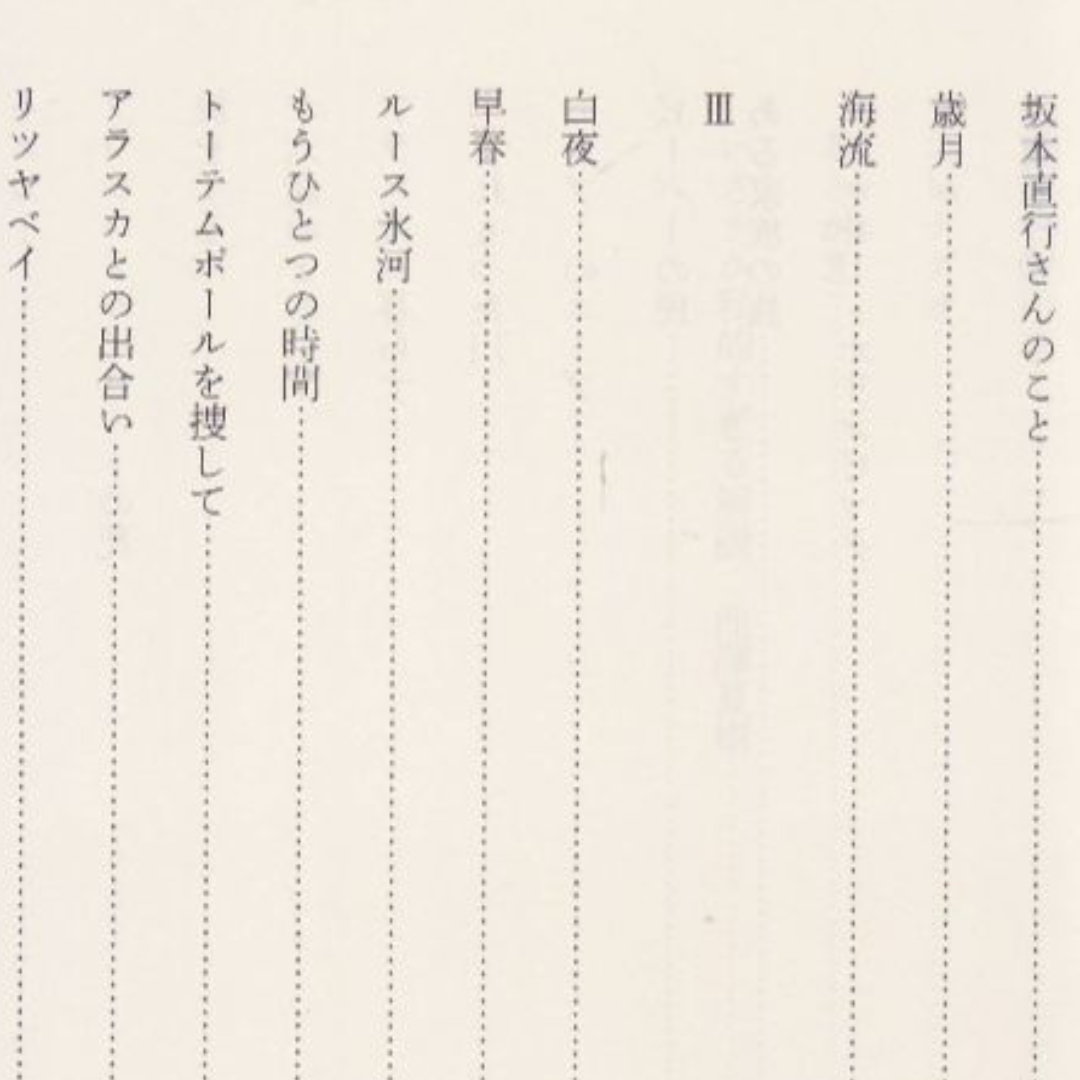 坂本直行さんのこと
歳月
海流
Ⅲ
白夜
早春
ルース氷河
もうひとつの時間
トーテムポールを捜して
アラスカとの出合い
リツヤベイ